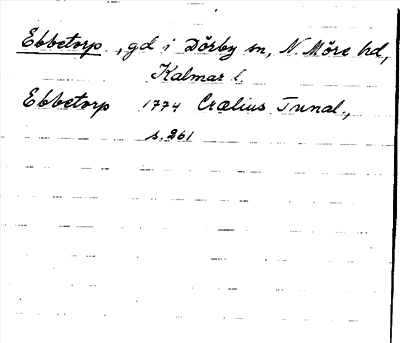 Ebbetorp, gd i Dörby sn, N. Möre hd,
Kalmar l.
Ebbetorp 1774 Crælius Tunal.,
s. 361